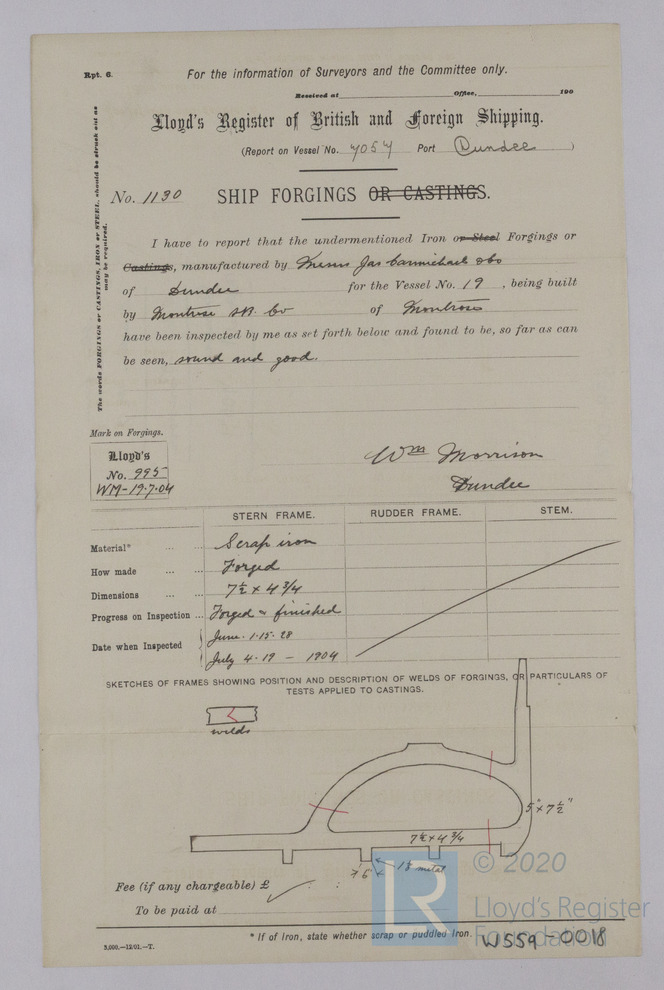 Rpt. 6.
For the information of Surveyors and the Committee only.
Received at Office, 190
Lloyd's Register of British and Foreign Shipping.
(Report on Vessel No. 7057 Port Dundee )
No. 1130 SHIP FORGINGS OR CASTINGS.
The words FORGINGS or CASTINGS, IRON or STEEL, should be struck out as
may be required.
I have to report that the undermentioned Iron or Steel Forgings or
Castings, manufactured by Messrs Jas Carmichael & Co
of Dundee for the Vessel No. 19 , being built
by Montrose SB. Co of Montrose
have been inspected by me as set forth below and found to be, so far as can
be seen, sound and good.
Mark on Forgings.
Lloyd's
No. 995
WM-19.7.04
Wm Morrison
Dundee
STERN FRAME. RUDDER FRAME. STEM.
Material* ... ... Scrap iron
How made ... ... Forged
Dimensions ... ... 7½ x 4¾
Progress on Inspection ... Forged & finished
Date when Inspected June. 1.15. 28
July 4.19 - 1904
SKETCHES OF FRAMES SHOWING POSITION AND DESCRIPTION OF WELDS OF FORGINGS, OR PARTICULARS OF
TESTS APPLIED TO CASTINGS.
welds
5" x 7½"
7½ x 4¾
metal
Fee (if any chargeable) £
To be paid at
* If of Iron, state whether scrap or puddled Iron.
5,000.—12/01.—T.
W559-0018
© 2020
Lloyd's Register
Foundation